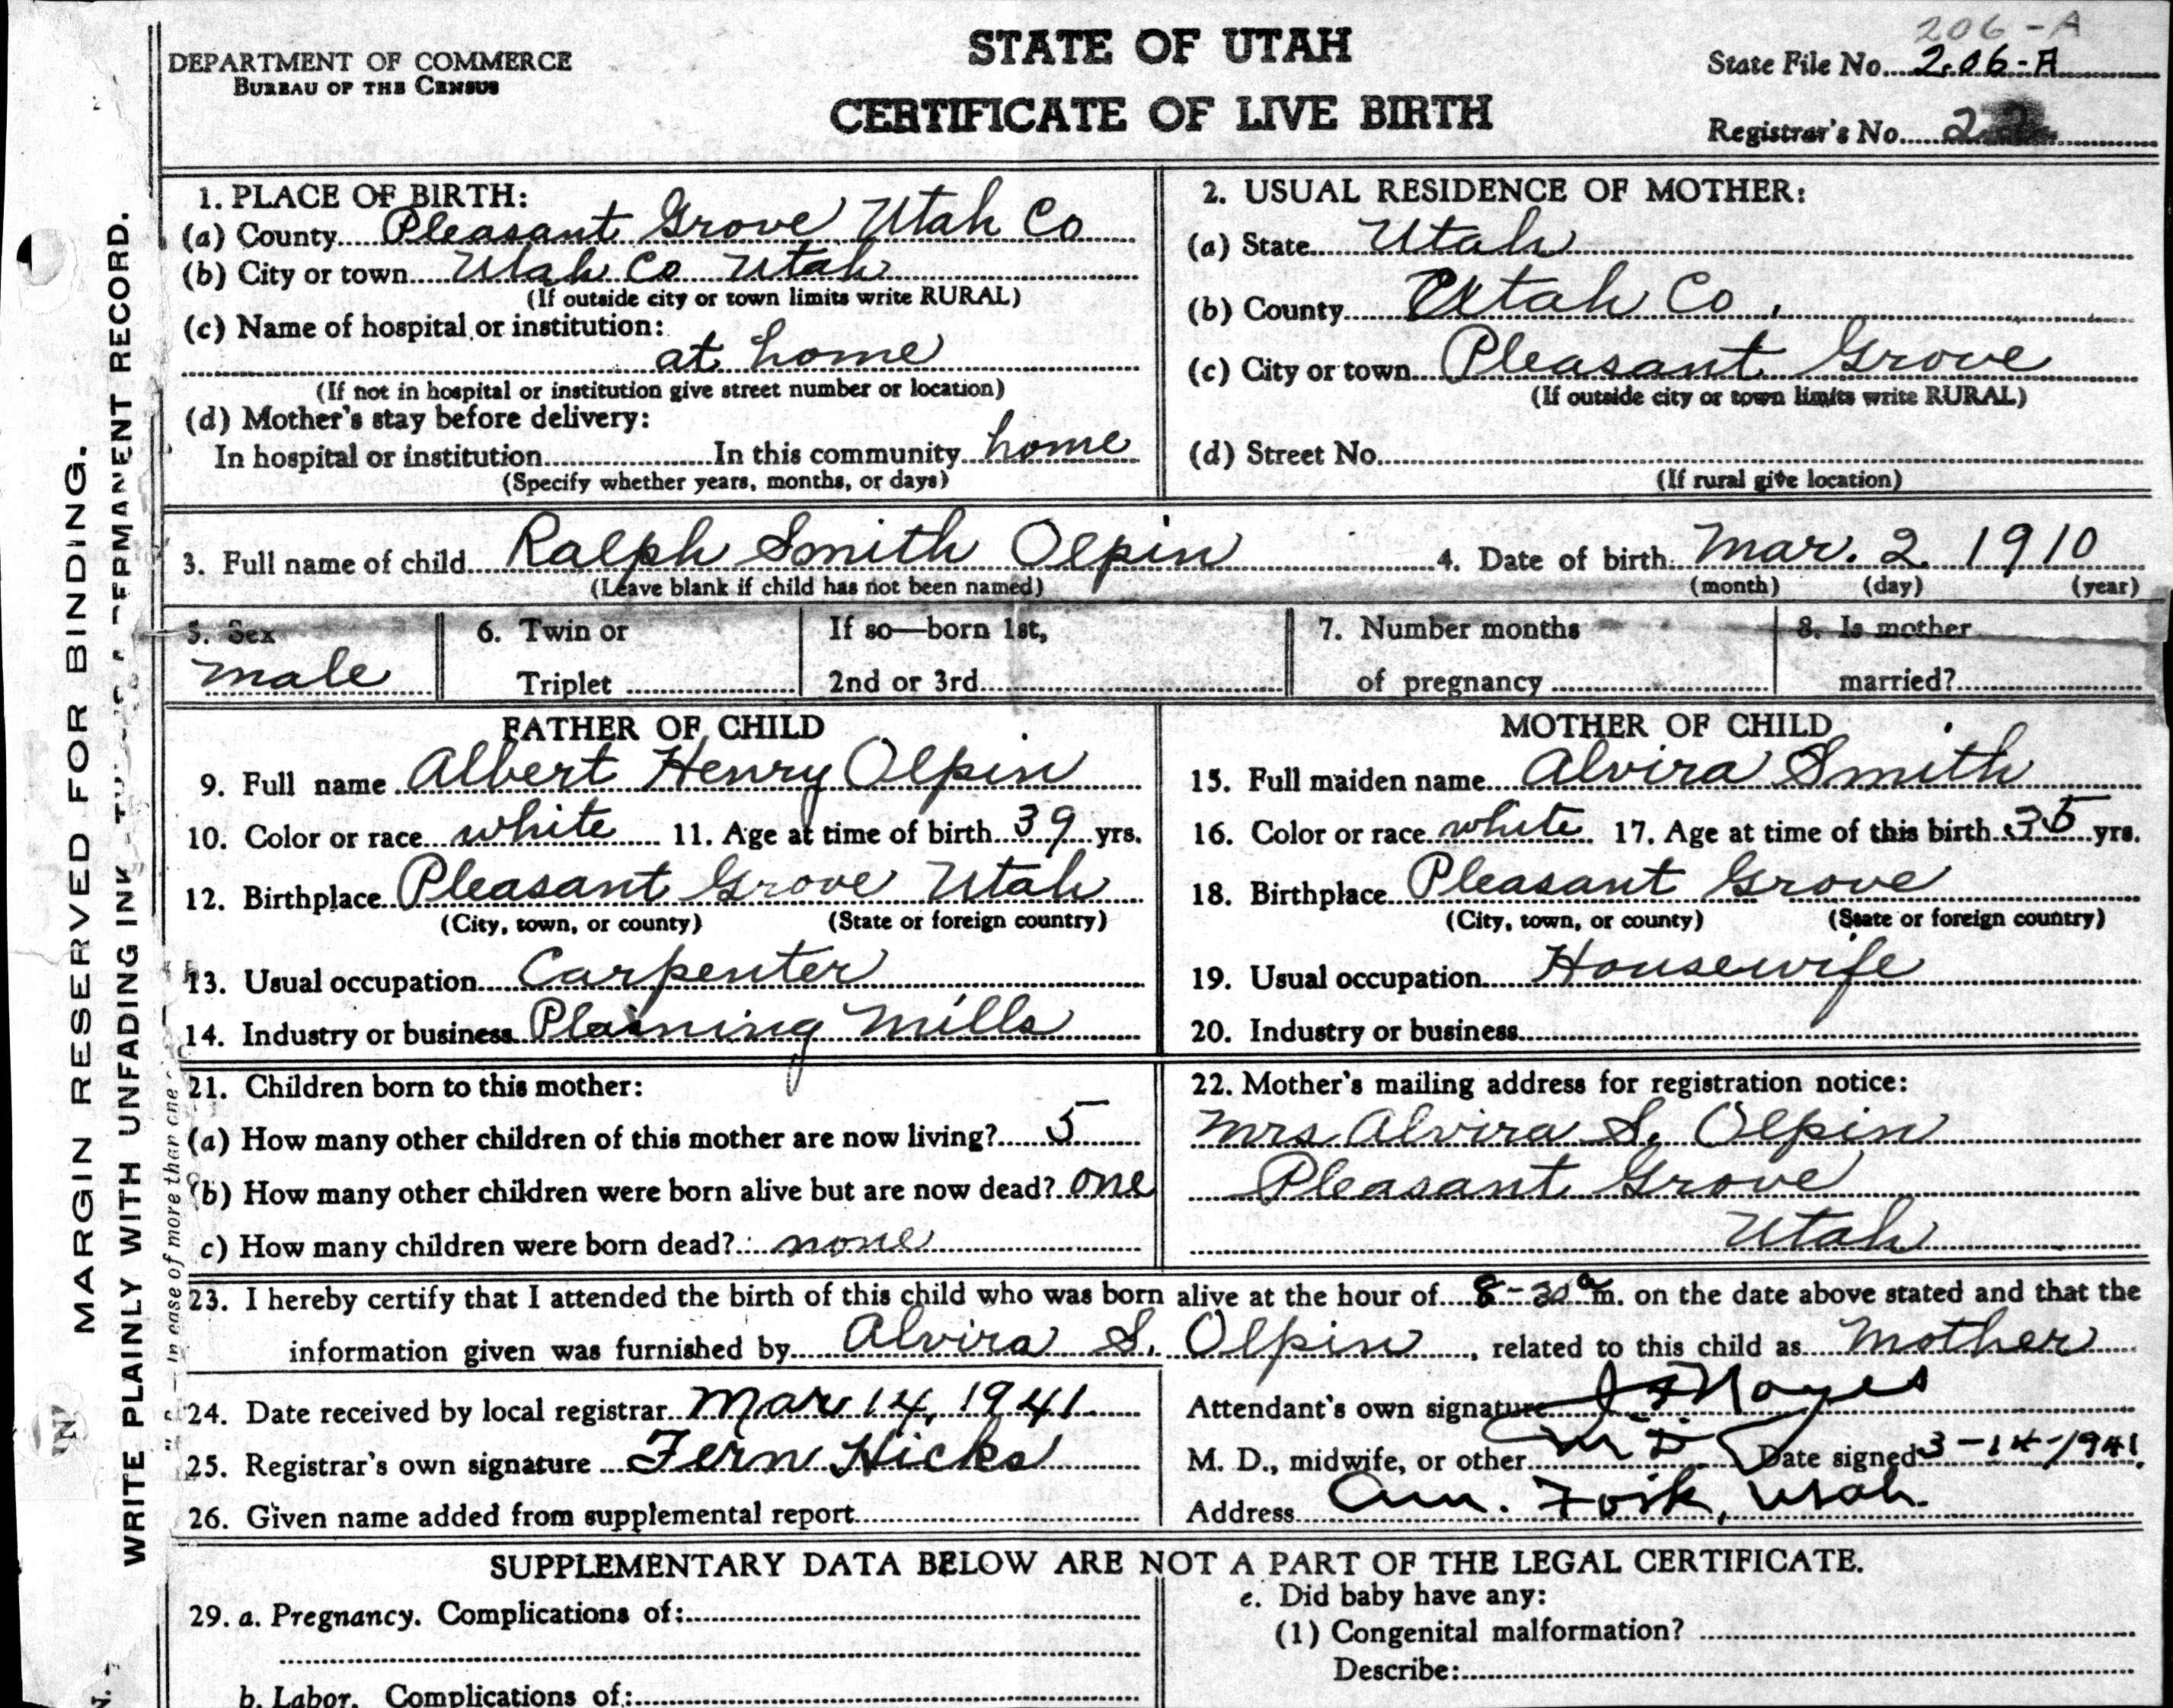 206-A
DEPARTMENT OF COMMERCE
BUREAU OF THE CENSUS
STATE OF UTAH
CERTIFICATE OF LIVE BIRTH
State File No. 206-A
Registrar's No. 2
1. PLACE OF BIRTH:
(a) County Pleasant Grove Utah Co
(b) City or town Utah Co Utah
(If outside city or town limits write RURAL)
(c) Name of hospital or institution:
at home
(If not in hospital or institution give street number or location)
(d) Mother's stay before delivery:
In hospital or institution In this community home
(Specify whether years, months, or days)
2. USUAL RESIDENCE OF MOTHER:
(a) State Utah
(b) County Utah Co,
(c) City or town Pleasant Grove
(If outside city or town limits write RURAL)
(d) Street No.
(If rural give location)
3. Full name of child Ralph Smith Olpin 4. Date of birth Mar. 2 1910
(Leave blank if child has not been named) (month) (day) (year)
5. Sex
male
6. Twin or
Triplet
If so—born 1st,
2nd or 3rd
7. Number months
of pregnancy
8. Is mother
married?
FATHER OF CHILD
9. Full name Albert Henry Olpin
10. Color or race white 11. Age at time of birth 39 yrs.
12. Birthplace Pleasant Grove Utah
(City, town, or county) (State or foreign country)
13. Usual occupation Carpenter
14. Industry or business Plaining Mills
MOTHER OF CHILD
15. Full maiden name Alvira Smith
16. Color or race white 17. Age at time of this birth 35 yrs.
18. Birthplace Pleasant Grove
(City, town, or county) (State or foreign country)
19. Usual occupation Housewife
20. Industry or business
21. Children born to this mother:
(a) How many other children of this mother are now living? 5
(b) How many other children were born alive but are now dead? one
c) How many children were born dead? none
22. Mother's mailing address for registration notice:
Mrs Alvira S. Olpin
Pleasant Grove
Utah
23. I hereby certify that I attended the birth of this child who was born alive at the hour of 8-30 a m. on the date above stated and that the
information given was furnished by Alvira S. Olpin, related to this child as Mother
24. Date received by local registrar Mar 14, 1941
25. Registrar's own signature Fern Hicks
26. Given name added from supplemental report
Attendant's own signature Noyes
M. D., midwife, or other M D Date signed 3-14-1941.
Address Am. Fork, Utah.
SUPPLEMENTARY DATA BELOW ARE NOT A PART OF THE LEGAL CERTIFICATE.
29. a. Pregnancy. Complications of:
b. Labor. Complications of:
e. Did baby have any:
(1) Congenital malformation?
Describe:
MARGIN RESERVED FOR BINDING.
WRITE PLAINLY WITH UNFADING INK PERMANENT RECORD.
In case of more than one